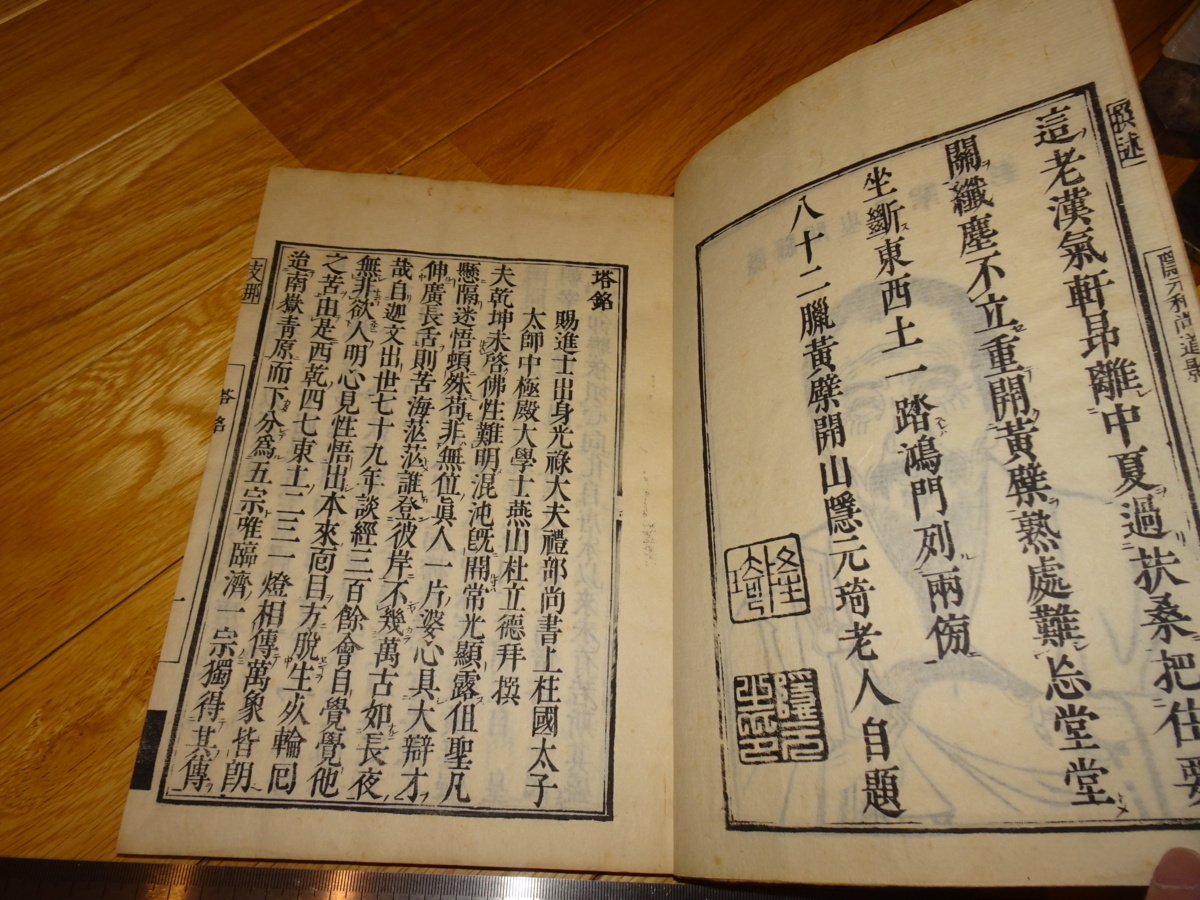 隱元和尚道影
這老漢氣軒昂離中夏過扶桑把住要
關纖塵不立重開黃檗熟處難忘堂堂
坐斷東西土一踏鴻門列兩傍
八十二臘黃檗開山隱元琦老人自題
塔銘
賜進士出身光祿大夫禮部尚書上柱國太子
太師中極殿大學士燕山杜立德拜撰
夫乾坤未啓佛性難明混沌旣開常光顯露但聖凡
懸隔迷悟頓殊苟非無位眞人一片婆心具大辯才
伸廣長舌則苦海茫茫誰登彼岸不幾萬古如長夜
哉自迦文出世七十九年談經三百餘會自覺覺他
無非欲人明心見性悟出本來面目方脫生死輪回
之苦由是西乾四七東土二三一燈相傳萬象皆朗
迨南嶽靑原而下分爲五宗唯臨濟一宗獨得其傳
塔銘
一